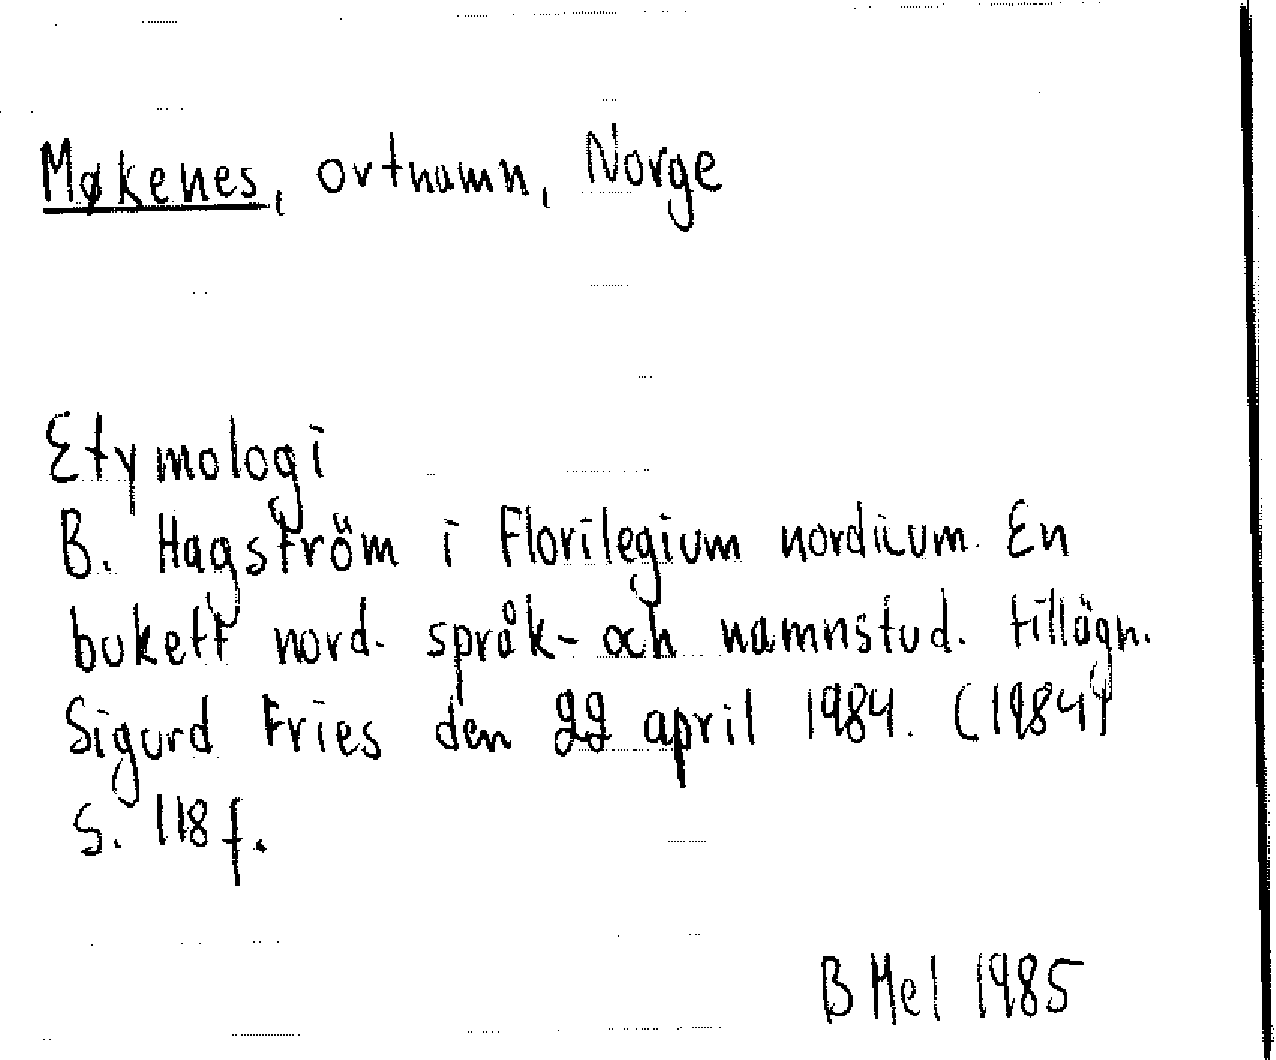 Møkenes, ortnamn, Norge
Etymologi
B. Hagström i Florilegium nordicum. En
bukett nord. språk- och namnstud. tillägn.
Sigurd Fries den 22 april 1984. (1984)
S. 118 f.
B Mel 1985